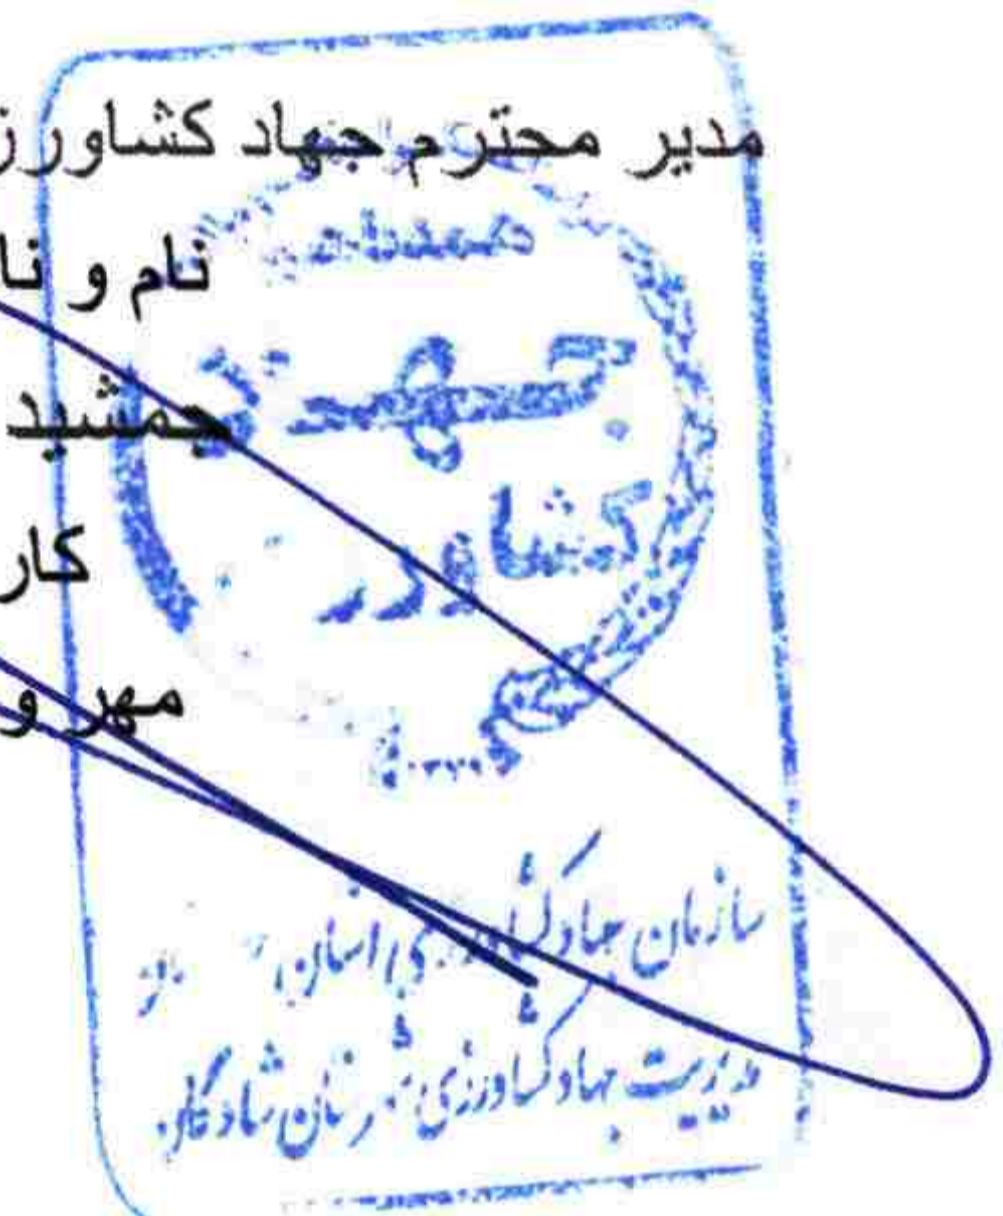 مدیر محترم جهاد کشاورز
نام و نا
جمشید
کار
مهر و
جهاد
کشاورز
سازمان جهاد کشاورزی استان
مدیریت جهاد کشاورزی شهرستان شادگان